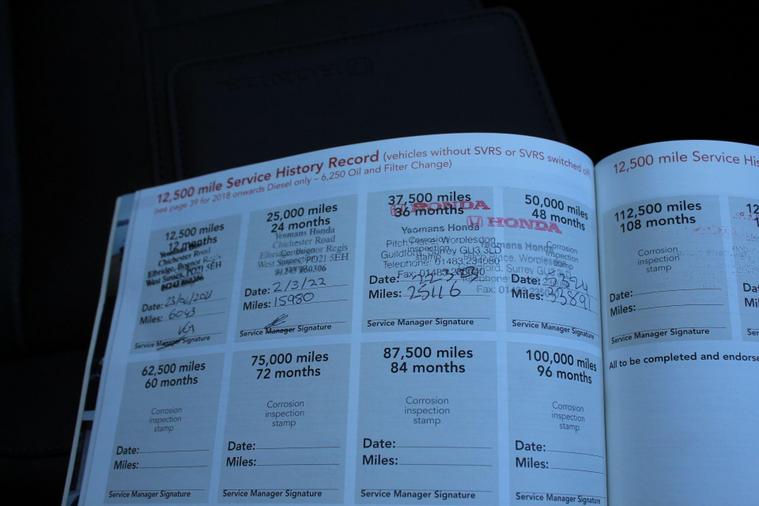 12,500 mile Service History Record (vehicles without SVRS or SVRS switched off
(see page 39 for 2018 onwards Diesel only – 6,250 Oil and Filter Change)
12,500 miles
12 months
Yeomans Honda
Chichester Road
Elbridge, Bognor Regis
West Sussex, PO21 5EH
Date: 23/06/2021
Miles: 6043
Service Manager Signature
25,000 miles
24 months
Yeomans Honda
Chichester Road
Elbridge, Bognor Regis
West Sussex PO21 5EH
Date: 2/3/22
Miles: 15980
Service Manager Signature
37,500 miles
36 months
HONDA
Yeomans Honda
Corrosion
inspection
stamp
Worplesdon
Guildford, Surrey GU3 3LD
Telephone: 01483 234080
Fax: 01483
Date:
Miles: 25116
Service Manager Signature
50,000 miles
48 months
HONDA
Yeomans Honda
Corrosion
inspection
stamp
Surrey GU3
Fax: 01483
Date:
Miles: 33891
Service Manager Signature
62,500 miles
60 months
Corrosion
inspection
stamp
Date:
Miles:
Service Manager Signature
75,000 miles
72 months
Corrosion
inspection
stamp
Date:
Miles:
Service Manager Signature
87,500 miles
84 months
Corrosion
inspection
stamp
Date:
Miles:
Service Manager Signature
100,000 miles
96 months
Corrosion
inspection
stamp
Date:
Miles:
Service Manager Signature
12,500 mile Service His
112,500 miles
108 months
Corrosion
inspection
stamp
Date:
Miles:
Service Manager Signature
All to be completed and endorse